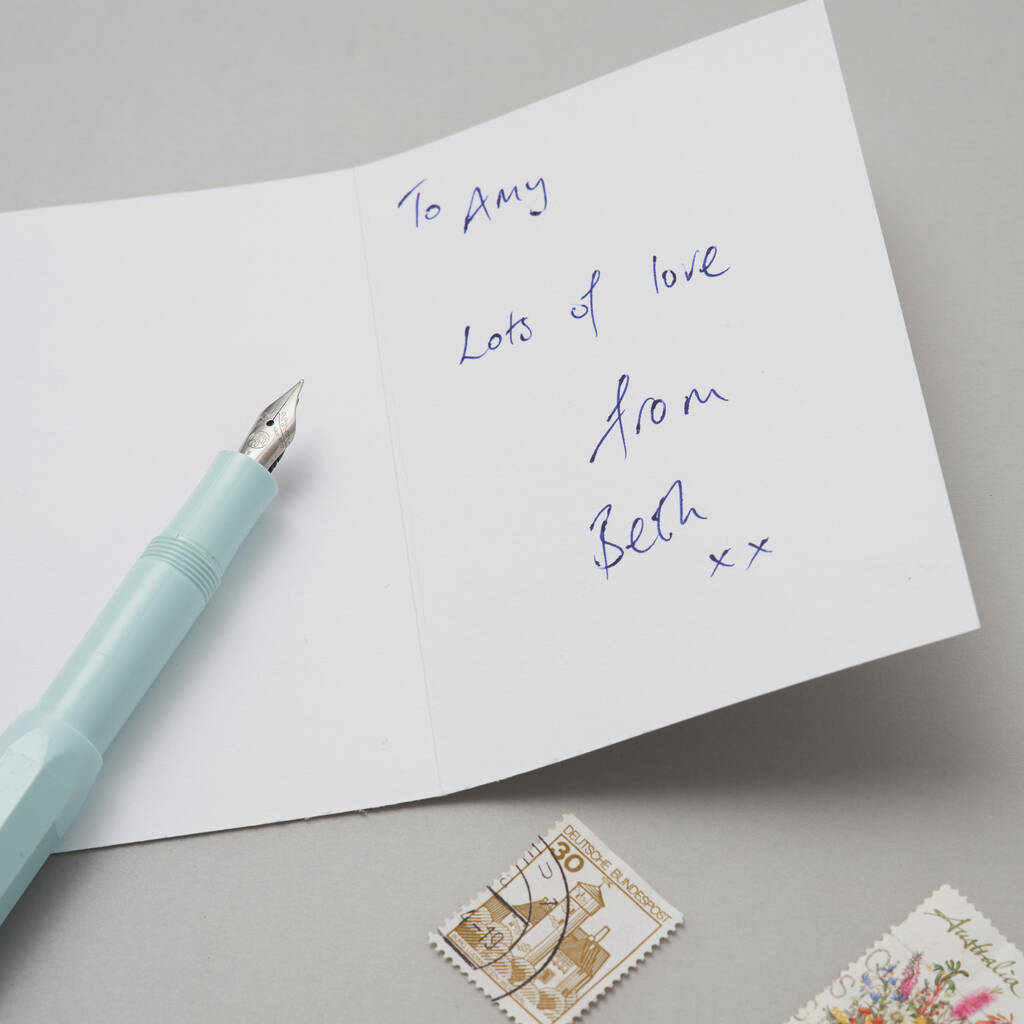 To Amy
Lots of love
from
Beth
xx
DEUTSCHE BUNDESPOST
30
Australia